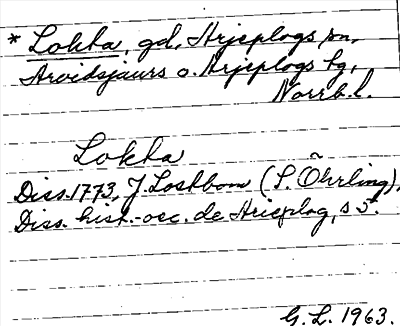 * Lokha, gd, Arjeplogs sn,
Arvidsjaurs o. Arjeplogs tg,
Norrb. l.
Lokha
Diss. 1773, J. Lostbom (S. Öhrling),
Diss. hist.-oec. de Arieplog, s 5.
G. L. 1963.